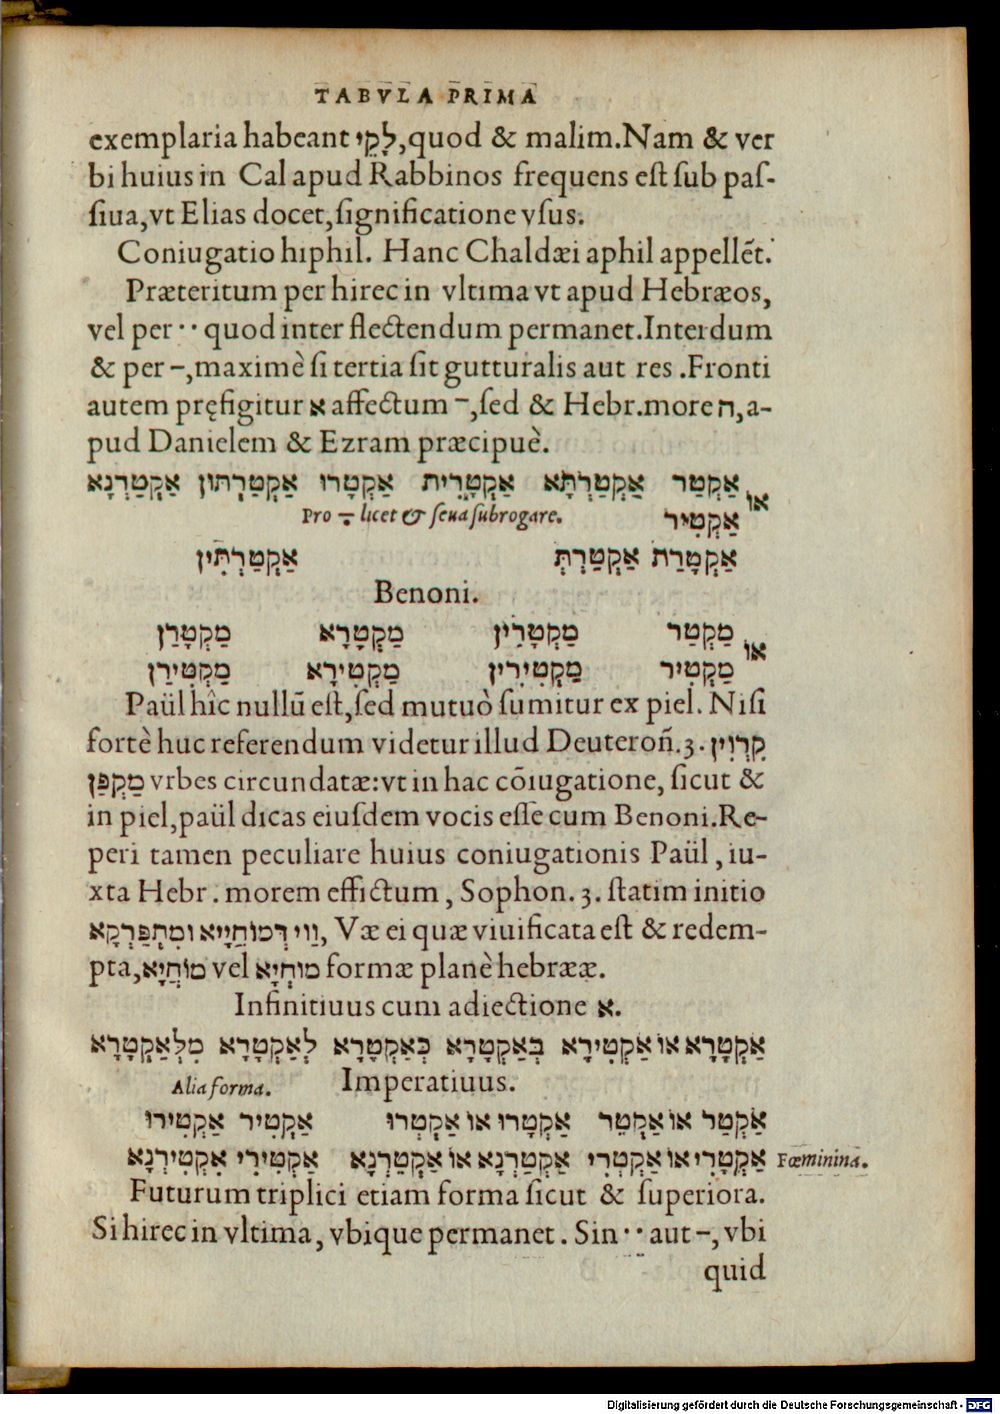 TABVLA PRIMA
exemplaria habeant לָקֵי, quod & malim. Nam & ver
bi huius in Cal apud Rabbinos frequens eſt ſub paſ-
ſiua, vt Elias docet, ſignificatione vſus.
Coniugatio hiphil. Hanc Chaldæi aphil appellẽt.
Præteritum per hirec in vltima vt apud Hebræos,
vel per ·· quod inter flectendum permanet. Interdum
& per -, maximè ſi tertia ſit gutturalis aut res. Fronti
autem pręfigitur א affectum -, ſed & Hebr. more ה, a-
pud Danielem & Ezram præcipuè.
אַקְטַר אַקְטַרְתָּא אַקְטָרִית אַקְטָרוּ אַקְטַרְתּוּן אַקְטַרְנָא
או
Pro licet & ſeua ſubrogare. אַקְטִיר
אַקְטָרַת אַקְטַרְתְּ אַקְטַרְתִּין
Benoni.
מַקְטַר מַקְטָרִין מַקְטָרָא מַקְטָרַן
או
מַקְטִיר מַקְטִירִין מַקְטִירָא מַקְטִירַן
Paül hîc nullũ eſt, ſed mutuò ſumitur ex piel. Niſi
fortè huc referendum videtur illud Deuteroñ. 3. קִרְוִין
מַקְפַן vrbes circundatæ: vt in hac cõiugatione, ſicut &
in piel, paül dicas eiuſdem vocis eſſe cum Benoni. Re-
peri tamen peculiare huius coniugationis Paül, iu-
xta Hebr. morem effictum, Sophon. 3. ſtatim initio
וַוי דְּמוֹחֲיָיא וּמִתְפַּרְקָא, Væ ei quæ viuificata eſt & redem-
pta, מוֹחֲיָא vel מוּחְיָא formæ planè hebrææ.
Infinitiuus cum adiectione א.
אַקְטָרָא אוֹ אַקְטִירָא בְּאַקְטָרָא כְּאַקְטָרָא לְאַקְטָרָא מִלְּאַקְטָרָא
Alia forma. Imperatiuus.
אַקְטַר אוֹ אַקְטֵר אַקְטָרוּ אוֹ אַקְטְרוּ אַקְטִיר אַקְטִירוּ
אַקְטָרִי אוֹ אַקְטְרִי אַקְטַרְנָא אוֹ אַקְטֵרְנָא אַקְטִירִי אִקְטִירְנָא Fœminina.
Futurum triplici etiam forma ſicut & ſuperiora.
Si hirec in vltima, vbique permanet. Sin ·· aut -, vbi
quid
Digitalisierung gefördert durch die Deutsche Forschungsgemeinschaft - DFG